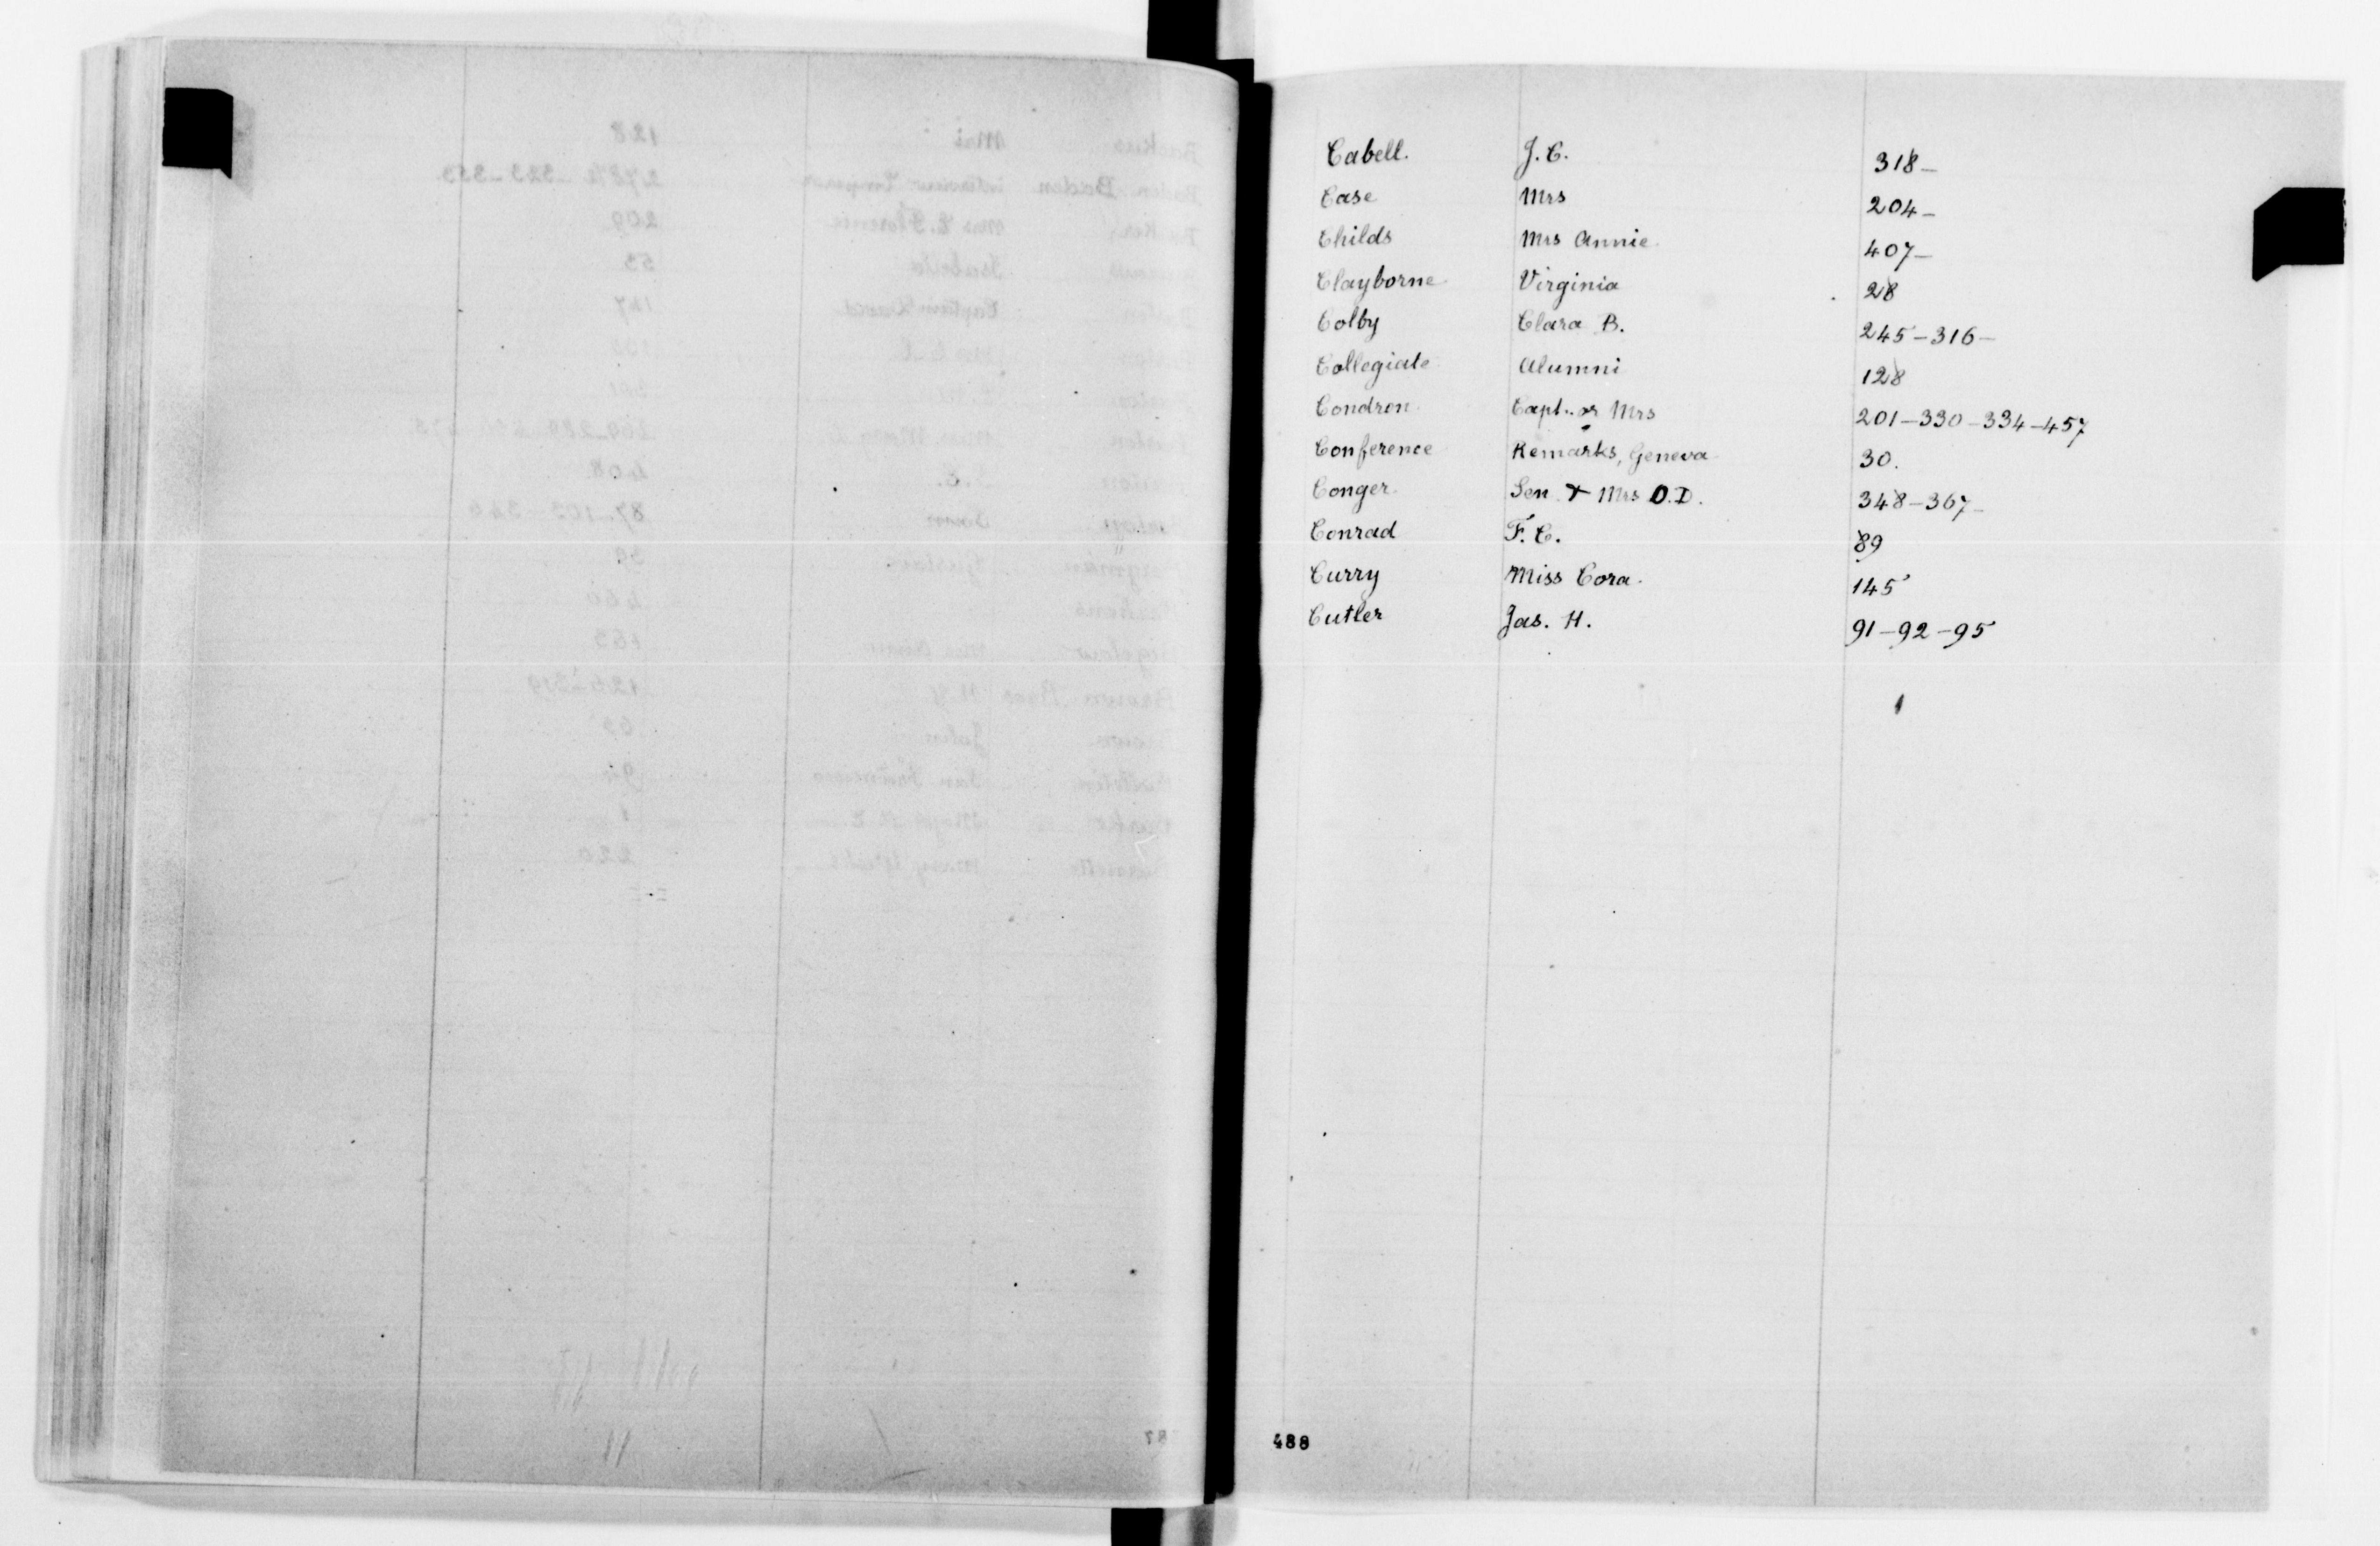 Cabell. J. C. 318-
Case Mrs 204-
Childs Mrs Annie. 407-
Clayborne Virginia 28
Colby Clara B. 245-316-
Collegiate Alumni 128
Condron. Capt. or Mrs 201-330-334-457
Conference Remarks, Geneva 30.
Conger. Sen & Mrs O.D. 348-367-
Conrad F. C. 89
Curry Miss Cora. 145
Cutler Jas. H. 91-92-95
488